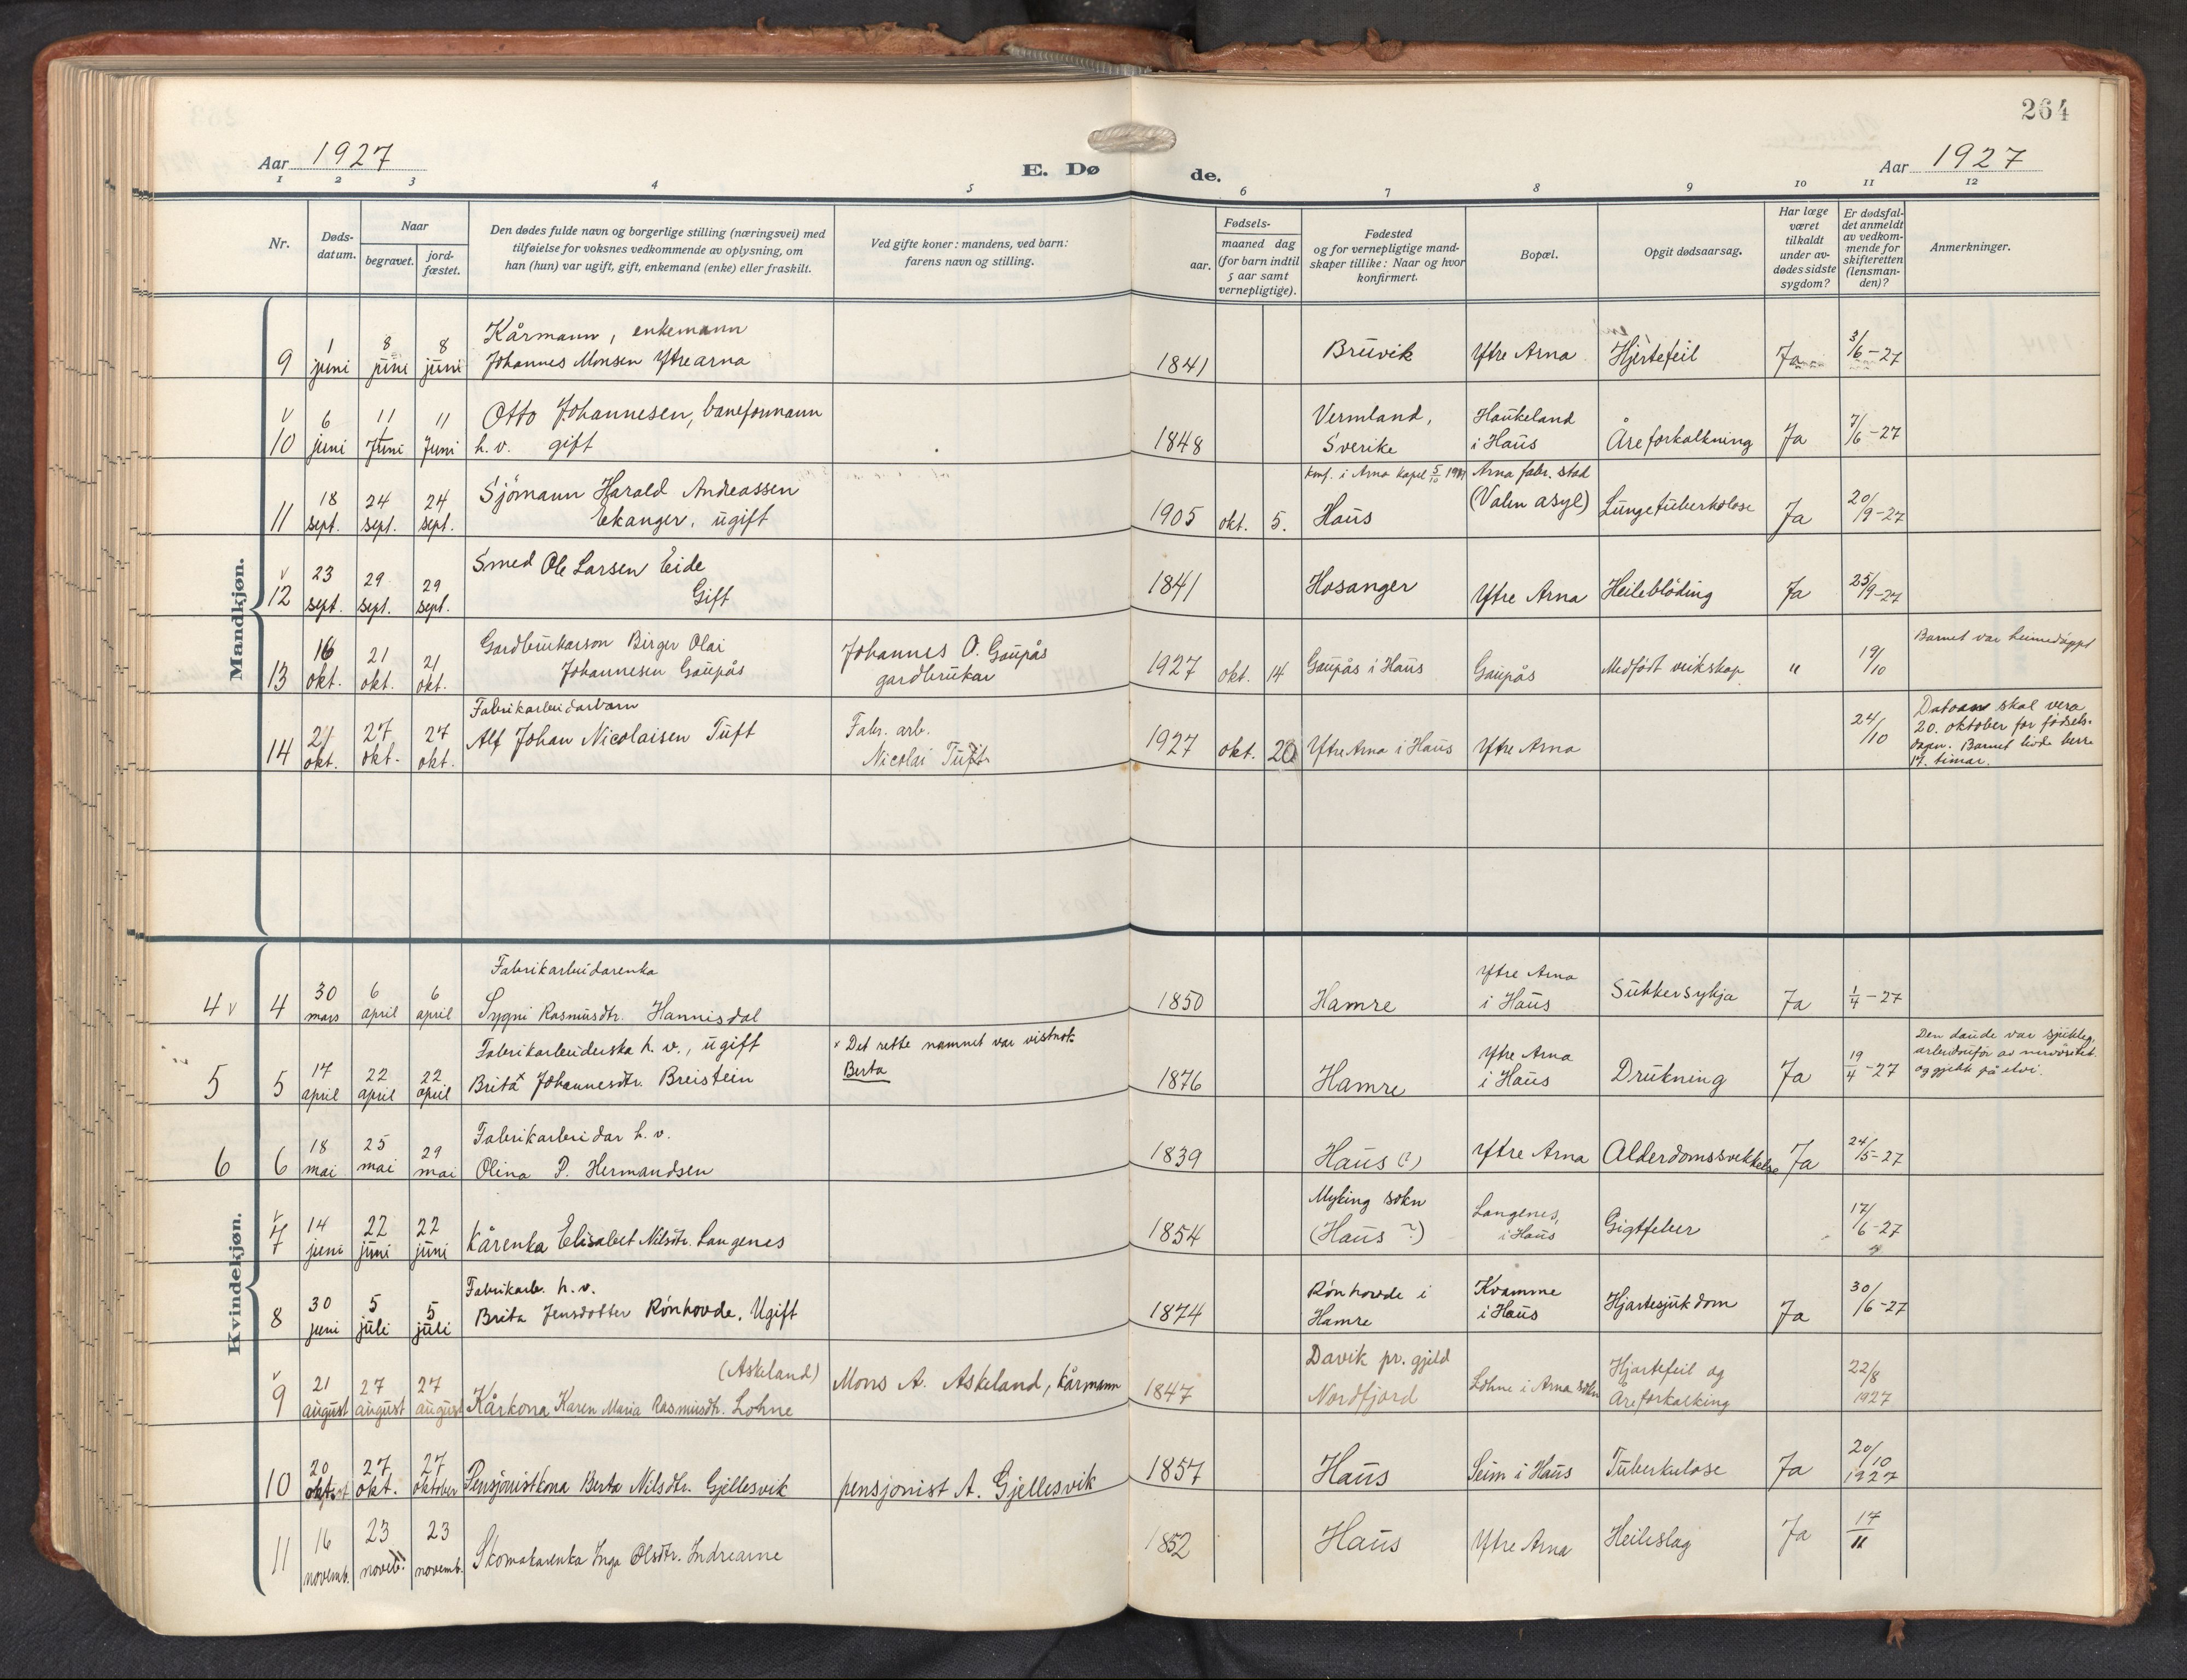 264
Aar 1927
E. Dø
de.
Aar 1927
1 2 3 4 5 6 7 8 9 10 11 12
Nr.
Døds-
datum.
Naar
begravet.
jord-
fæstet.
Den dødes fulde navn og borgerlige stilling (næringsvei) med
tilføielse for voksnes vedkommende av oplysning, om
han (hun) var ugift, gift, enkemand (enke) eller fraskilt.
Ved gifte koner: mandens, ved barn:
farens navn og stilling.
Fødsels-
aar.
maaned dag
(for barn indtil
5 aar samt
vernepligtige).
Fødested
og for vernepligtige mand-
skaper tillike: Naar og hvor
konfirmert.
Bopæl.
Opgit dødsaarsag.
Har læge
været
tilkaldt
under av-
dødes sidste
sygdom?
Er dødsfal-
det anmeldt
av vedkom-
mende for
skifteretten
(lensman-
den)?
Anmerkninger.
Mandkjøn.
Kårmann, enkemann
9 1 juni 8 juni 8 juni Johannes Monsen Ytrearna 1841 Bruvik Ytre Arna Hjertefeil Ja 3/6-27
v 6 11 11 Otto Johannesen, baneformann Vermland, Haukeland
10 juni Juni Juni h. v. gift 1848 Sverike i Haus Åreforkalkning Ja 7/6-27
konf. i Arna kapel 5/10 Arna fabr. stad
18 24 24 Sjömann Harald Andreassen (Valen asyl)
11 sept. sept. sept. Ekanger, ugift 1905 okt. 5. Haus Lungetuberkolose Ja 20/9-27
v 23 29 29 Smed Ole Larsen Eide
12 sept. sept. sept. Gift 1841 Hosanger Ytre Arna Heileblöding Ja 25/9-27
16 21 21 Gardbrukarson Birger Olai Johannes O. Gaupås Barnet var heimedöypt
13 okt. okt. okt. Johannesen Gaupås gardbrukar 1927 okt. 14 Gaupås i Haus Gaupås Medfödt veikskap " 19/10
Fabrikarbeidarbarn Datoen skal vera
21 27 27 Alf Johan Nicolaisen Tuft Fabr. arb. 20. oktober for födsels-
14 okt. okt. okt. Nicolai Tuft 1927 okt. 20 Ytre Arna i Haus Ytre Arna 24/10 dagen. Barnet livde berre
17. timar.
Kvindekjøn.
Fabrikarbeidarenka Ytre Arna
4 v 4 30 mars 6 april 6 april Sygni Rasmusdtr. Hannisdal 1850 Hamre i Haus Sukkersykja Ja 1/4-27
Fabrikarbeiderska h. v., ugift x Det rette namnet var vistnok Ytre Arna Den daude var sjukleg,
5 5 17 april 22 april 22 april Brita x Johannesdtr. Breistein Berta 1876 Hamre i Haus Drukning Ja 19/4-27 arbeidsufør av nervösitet.
og gjekk på elvi.
Fabrikarbeidar h. v.
6 6 18 mai 25 mai 29 mai Olina P. Hermandsen 1839 Haus (?) Ytre Arna Alderdomssvekkelse Ja 24/5-27
Myking sokn Langenes,
v 7 14 juni 22 juni 22 juni Kårenka Elisabet Nilsdtr. Langenes 1854 (Haus ?) i Haus Gigtfeber 17/6-27
Fabrikarb. h. v. Rónhovde i Kvamme
8 30 juni 5 juli 5 juli Brita Jensdotter Rónhovde, Ugift 1874 Hamre i Haus Hjartesjukdom Ja 30/6-27
(Askeland) Davik pr. gjeld Hjartefeil og
v 9 21 august 27 august 27 august Kårkona Karen Maria Rasmusdtr. Lohne Mons A. Askeland, kårmann 1847 Nordfjord Lohne i Arna sokn Åreforkalking 22/8 1927
10 20 okt. 27 okt. 27 oktober Pensjonistkona Berta Nilsdtr. Gjellesvik pensjonist A. Gjellesvik 1857 Haus Seim i Haus Tuberkulose Ja 20/10 1927
11 16 novemb. 23 novb. 23 novemb. Skomakarenka Inga Olsdtr. Indrearne 1852 Haus Ytre Arna Heileslag Ja 17/11